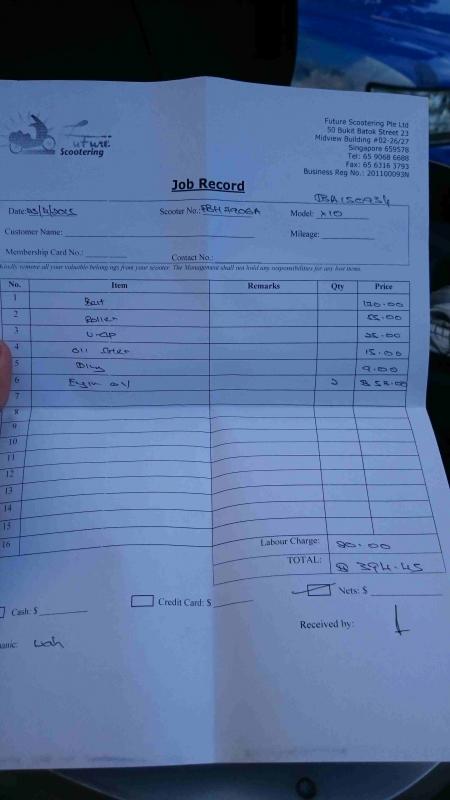 Future Scootering
Future Scootering Pte Ltd
50 Bukit Batok Street 23
Midview Building #02-26/27
Singapore 659578
Tel: 65 9068 6688
Fax: 65 6316 3793
Business Reg No.: 201100093N
Job Record
Date: Scooter No.: Model: X10
Customer Name: Mileage:
Membership Card No.: Contact No.:
Kindly remove all your valuable belongings from your scooter. The Management shall not hold any responsibilities for any lost items.
No. Item Remarks Qty Price
1 Belt
2 Roller 55.00
3
4 15.00
5 Plug 9.00
6 Engin oil
7
8
9
10
11
12
13
14
15
16
Labour Charge:
TOTAL: $ 394.45
Cash: $ Credit Card: $ Nets: $
Received by:
anic: Wah